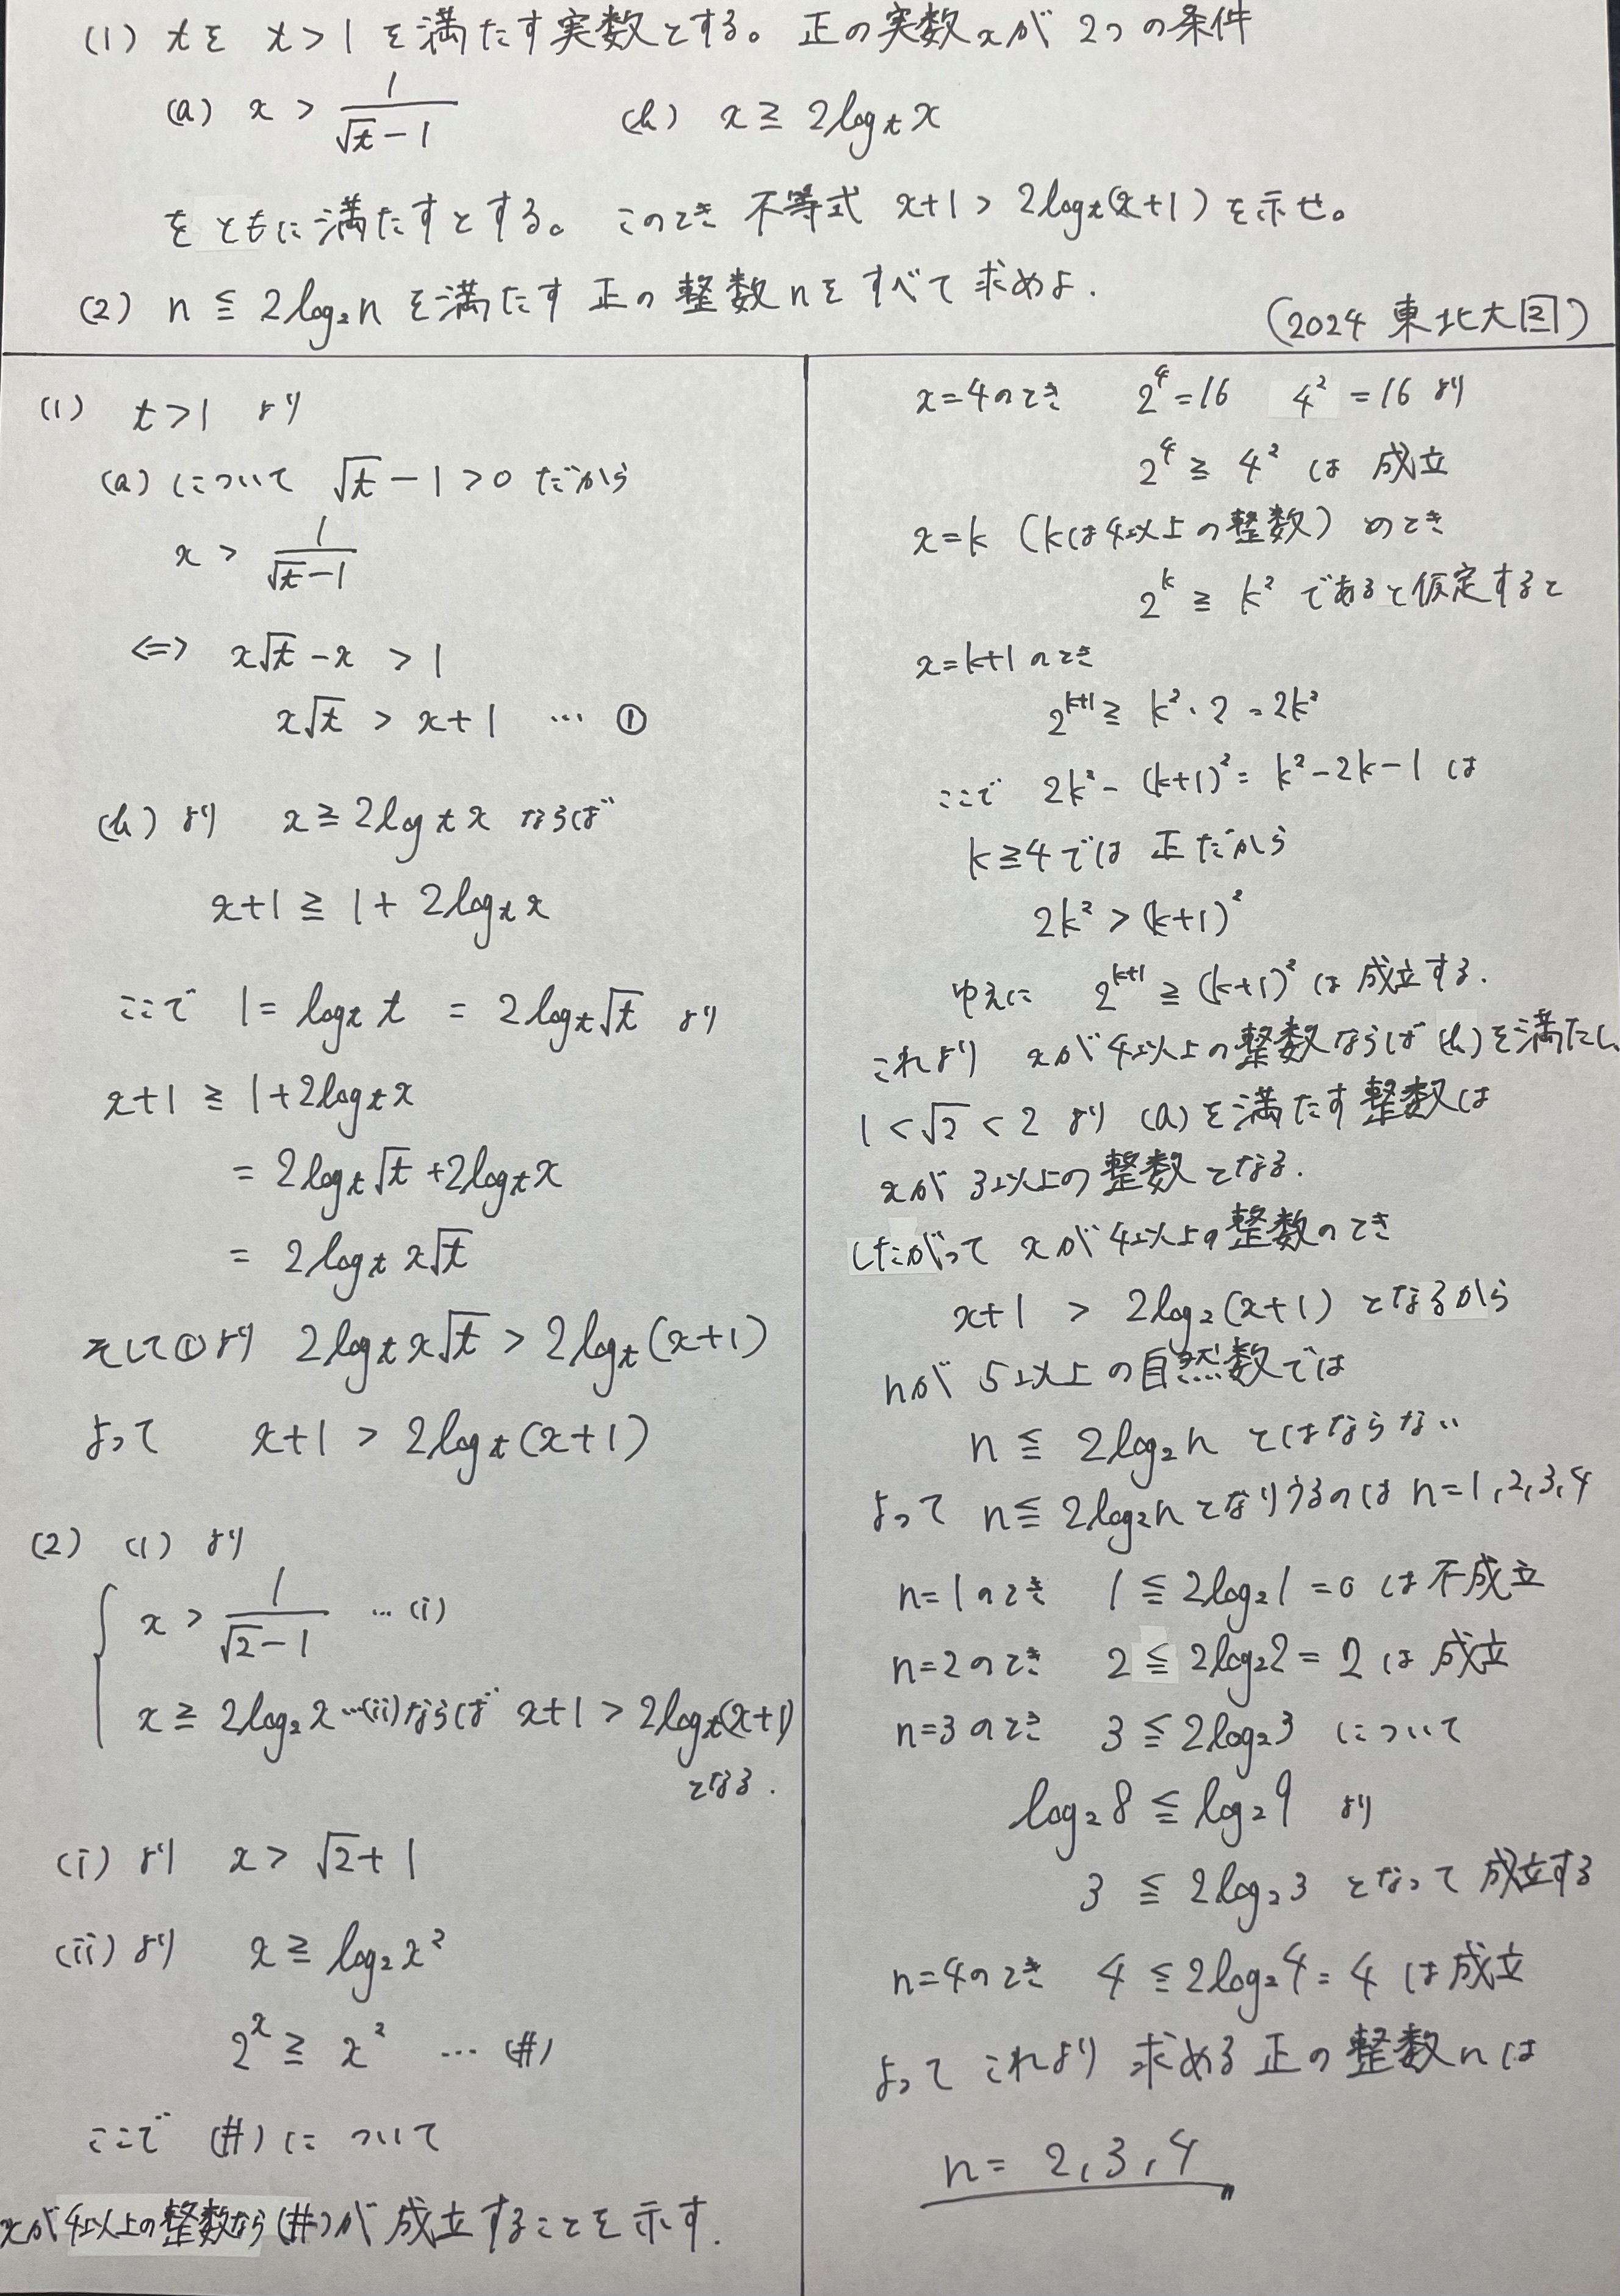 (1) tを t>1 を満たす実数とする。正の実数xが 2つの条件
(a) x > 1/(√t−1)  (b) x ≧ 2log_t x
をともに満たすとする。このとき 不等式 x+1 > 2log_t(x+1) を示せ。
(2) n ≦ 2log₂n を満たす 正の整数nをすべて求めよ.
(2024 東北大 図)
(1) t>1 より
(a) について √t−1>0 だから
x > 1/(√t−1)
⇔ x√t−x > 1
x√t > x+1 … ①
(b) より x≧2log_t x ならば
x+1 ≧ 1+2log_t x
ここで 1 = log_t t = 2log_t√t より
x+1 ≧ 1+2log_t x
= 2log_t√t+2log_t x
= 2log_t x√t
そして①より 2log_t x√t > 2log_t(x+1)
よって x+1 > 2log_t(x+1)
(2) (1) より
x > 1/(√2−1) …(i)
x ≧ 2log₂x …(ii) ならば x+1 > 2log_t(x+1)
となる.
(i) より x > √2+1
(ii) より x ≧ log₂x²
2ˣ ≧ x² … (#)
ここで (#) について
xが4以上の整数なら(#)が成立することを示す.
x=4のとき 2⁴=16 4²=16 より
2⁴ ≧ 4² は 成立
x=k (kは4以上の整数) のとき
2ᵏ ≧ k² であると仮定すると
x=k+1 のとき
2ᵏ⁺¹ ≧ k²・2 = 2k²
ここで 2k²−(k+1)² = k²−2k−1 は
k≧4では 正だから
2k² > (k+1)²
ゆえに 2ᵏ⁺¹ ≧ (k+1)² は成立する.
これより xが4以上の整数ならば(b)を満たし、
1<√2<2 より (a)を満たす整数は
xが 3以上の整数となる.
したがって xが4以上の整数のとき
x+1 > 2log₂(x+1) となるから
nが 5以上の自然数では
n ≦ 2log₂n とはならない
よって n≦2log₂n となりうるのは n=1,2,3,4
n=1のとき 1≦2log₂1=0 は不成立
n=2のとき 2≦2log₂2=2 は 成立
n=3のとき 3≦2log₂3 について
log₂8 ≦ log₂9 より
3 ≦ 2log₂3 となって成立する
n=4のとき 4≦2log₂4=4 は成立
よって これより 求める正の整数nは
n= 2,3,4